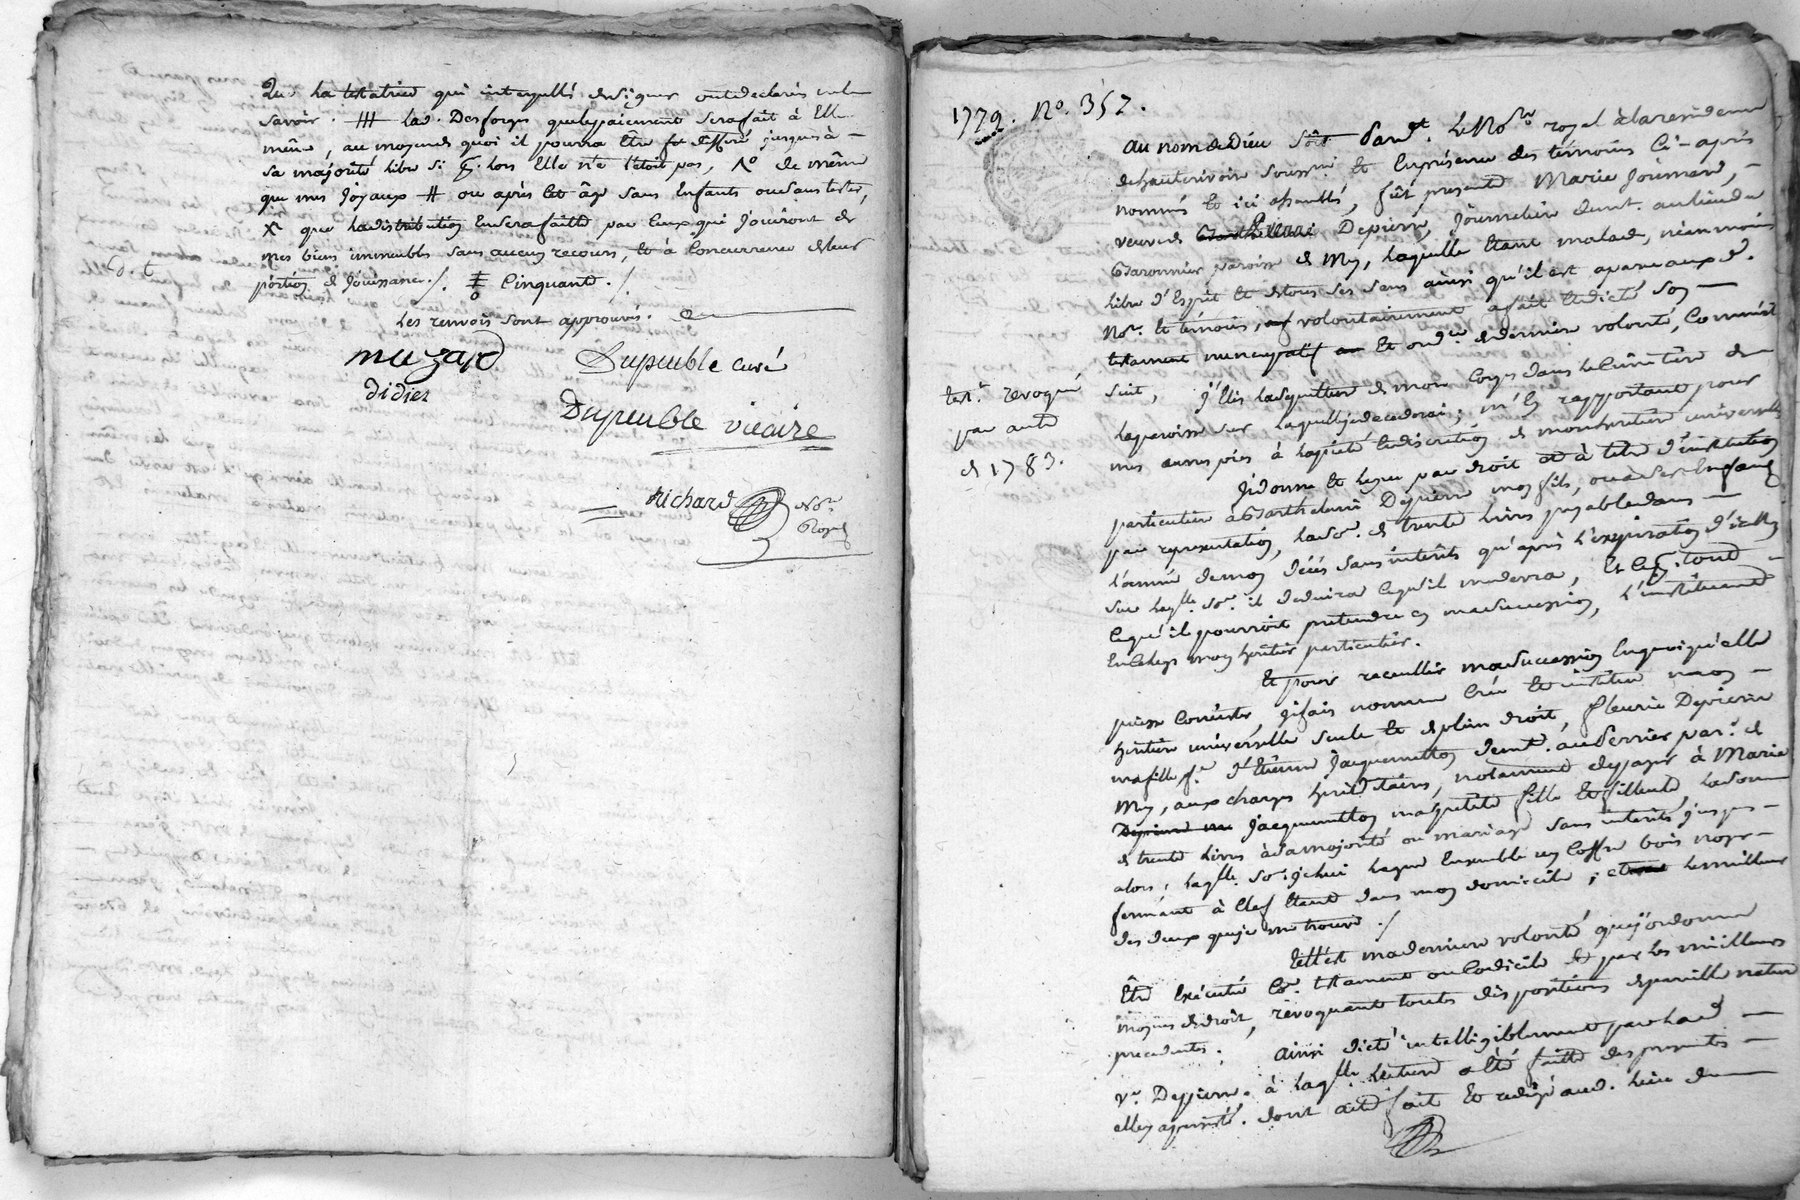 que la testatrice qui interpellés de signer ont declarés
savoir. lad. Desforges que le paiement sera fait à Elle
même, au moyend quoi il pourra être differé jusques à —
sa majorité libre si lors Elle ne l'étoit pas, de même
que mes joyaux # ou après cet âge sans Enfants ou sans tester,
X que la distribution En sera faitte par Ceux qui jouiront de
mes biens immeubles sans aucun recours, et à Concurrence de leur
portion de jouissance ./. Cinquante ./
Les renvois sont approuvés.
muzard
Dupeuble curé
didier
Dupeuble vicaire
Richard
No.re
Royal
1779. No. 357.
au nom de Dieu Soit Pard.t Le No.re royal à la residence
de hauterivoire souss.né et En présence des témoins Ci-après
nommés et ici assemblés, fût presente Marie Journard, —
veuve de Pierre Depierre, journalier demt. au lieu de
paroisse de Mys, laquelle étant malade, néanmoins
libre d'Esprit et de tous ses sens ainsi qu'il est aparu aux d.
No.re et témoins, volontairement a fait et dicté son —
testament nuncupatif et ord.ce de derniere volonté, Comme s'ensuit
test.t revoqué
par autre
de 1783.
suit, j'Elis la sepulture de mon Corps dans le Cimetière de
la paroisse sur laquelle je decederai; m'En rapportant pour
mes œuvres pies à la pieté et discretion de mon heritier universelle
je donne et legue par droit et à titre d'institution
particuliere à Barthelemi Depierre mon fils, ou à ses Enfans
par representation, la so.e de trente livres payable dans —
l'année de mon décés sans interêts qu'après l'expiration d'icelle
sur laq.lle so.e il deduira Ce qu'il me devra, Et Ce p.r tout —
Ce qu'il pourroit pretendre en ma succession, L'instituant
En Ce legs mon heritier particulier.
Et pour recueillir ma succession En quoi qu'elle
puisse Consister, je fais nomme Crée et institue mon —
heritiere universelle seule et de plein droit, fleurie Depierre
ma fille f.e d'Etienne Jacquemetton demt. au Perrier par.e de
Mys, aux charges héréditaires, notamment de payer à Marie
Jacquemetton ma petite fille et fillieule, la somme
de trente livres à sa majorité ou mariage sans interêts jusques —
alors, laq.lle so.e je lui legue Ensemble un Coffre bois noyer —
fermant à Clef Etant dans mon domicile, le meilleur
des deux que je me trouve ./
tell'est ma derniere volonté que j'ordonne
Être Exécuté Co.e testament ou Codicile et par les meilleurs
moyens de droit, revoquant toutes dispositions de pareille nature
precedentes. ainsi dicté intelligiblement par lad. —
v.e Depierre. à laq.lle lecture a été faitte des presentes —
elle y a persisté. dont acte fait et redigé aud. lieu de —